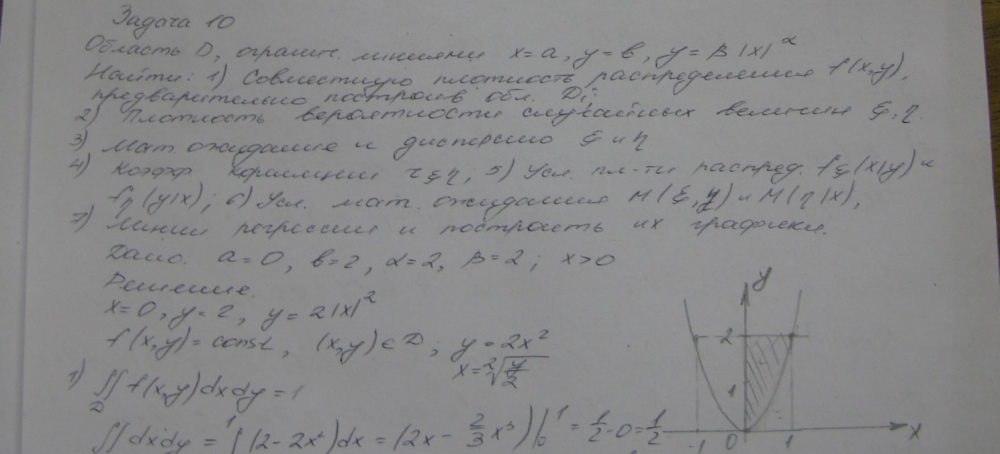 Задача 10
Область D, огранич. линиями x=a, y=в, y=β|x|^α
Найти: 1) Совместную плотность распределения f(x,y),
предварительно построив обл. D;
2) Плотность вероятности случайных величин ξ,η.
3) Мат. ожидание и дисперсию ξ и η
4) Коэфф корреляции τξη, 5) Усл. пл-ти распред. fξ(x|y) и
fη(y|x); 6) Усл. мат. ожидания M(ξ,y) и M(η|x),
7) Линии регрессии и построить их графики.
Дано. a=0, в=2, α=2, β=2; x>0
Решение.
x=0, y=2, y=2|x|²
f(x,y)=const, (x,y)∈D; y=2x²
x=²√(y/2)
1) ∬_D f(x,y)dxdy=1
∬dxdy = ∫¹(2-2x²)dx = (2x - 2/3 x³)|₀¹ = 1/2 - 0 = 1/2
y
2
1
-1 0 1 x